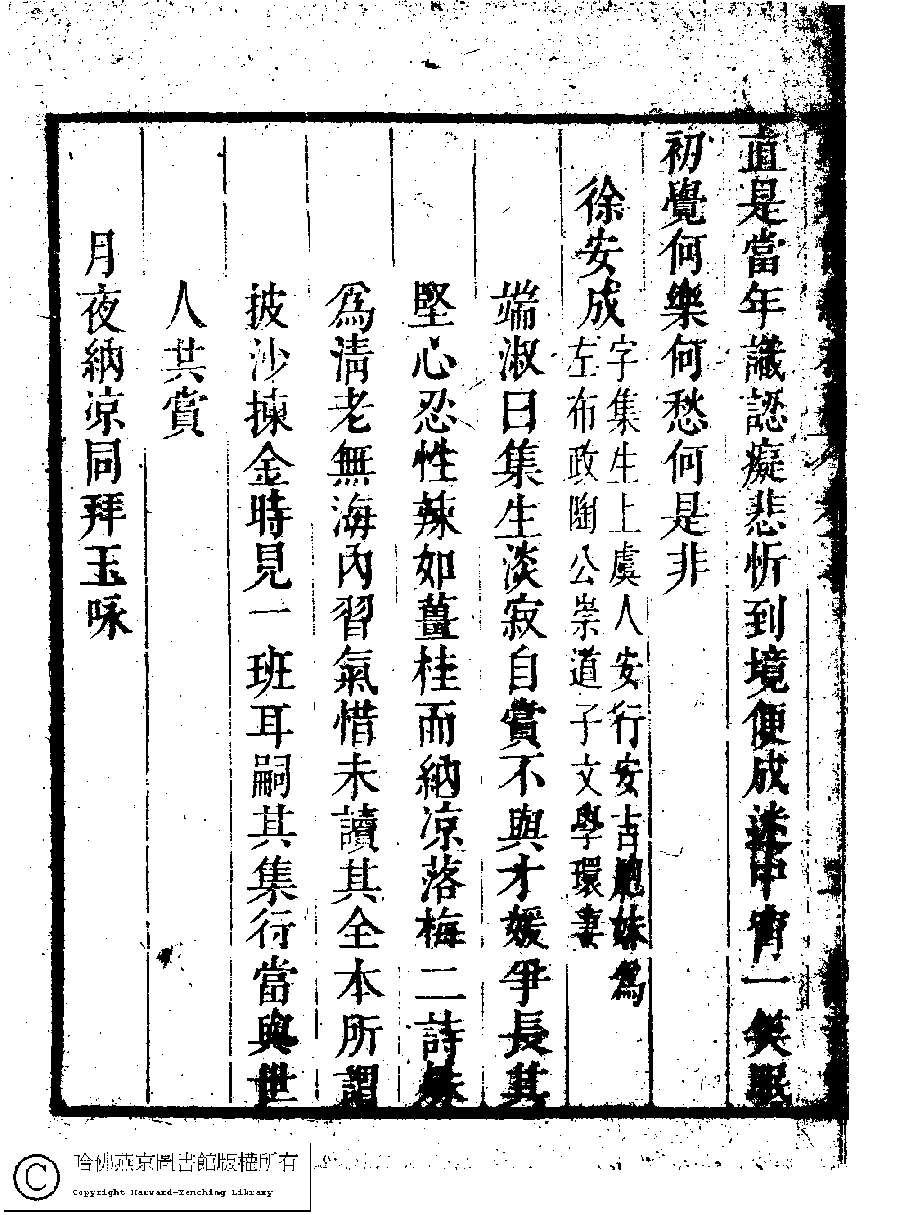 直是當年識認癡悲忻到境便成淡中宵一矣眠
初覺何樂何愁何是非
徐安成
字集生上虞人安行安吉胞妹爲
左布政陶公崇道子文學環妻
端淑曰集生淡寂自賞不與才媛爭長其
堅心忍性辣如薑桂而納凉落梅二詩殊
爲淸老無海內習氣惜未讀其全本所謂
披沙揀金時見一班耳嗣其集行當與世
人共賞
月夜納凉同拜玉咏
哈佛燕京圖書館版權所有
Copyright Harvard-Yenching Library